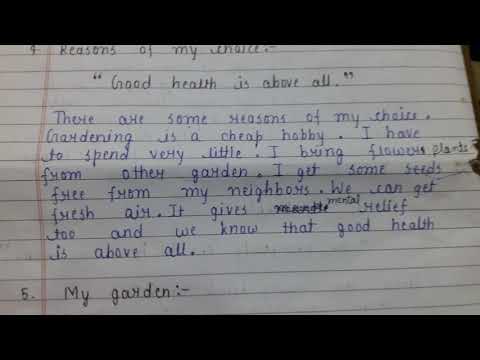 4. Reasons of my choice:-
"Good health is above all."
There are some reasons of my choice.
Gardening is a cheap hobby. I have
to spend very little. I bring flowers plants
from other garden. I get some seeds
free from my neighbors. We can get
fresh air. It gives mental relief
too and we know that good health
is above all.
5. My garden:-